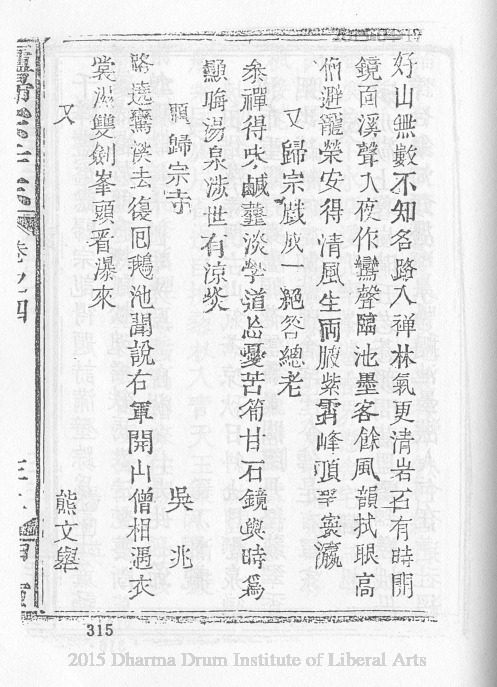 好山無數不知名路入禅林氣更清岩石有時開
鏡面溪聲入夜作鸞聲臨池墨客餘風韻拭眼高
僧避寵榮安得清風生兩腋紫霄峰頂瞰寰瀛
又歸宗戲成一絕答總老
叅禪得味鹹虀淡學道忘憂苦筍甘石鏡與時爲
顯晦湯泉涉世有涼炎
題歸宗寺 吳兆
路遶鸞溪去復囘鵝池聞說右軍開山僧相遇衣
裳濕雙劍峯頭看瀑來
又 熊文舉
卷之四
315
2015 Dharma Drum Institute of Liberal Arts